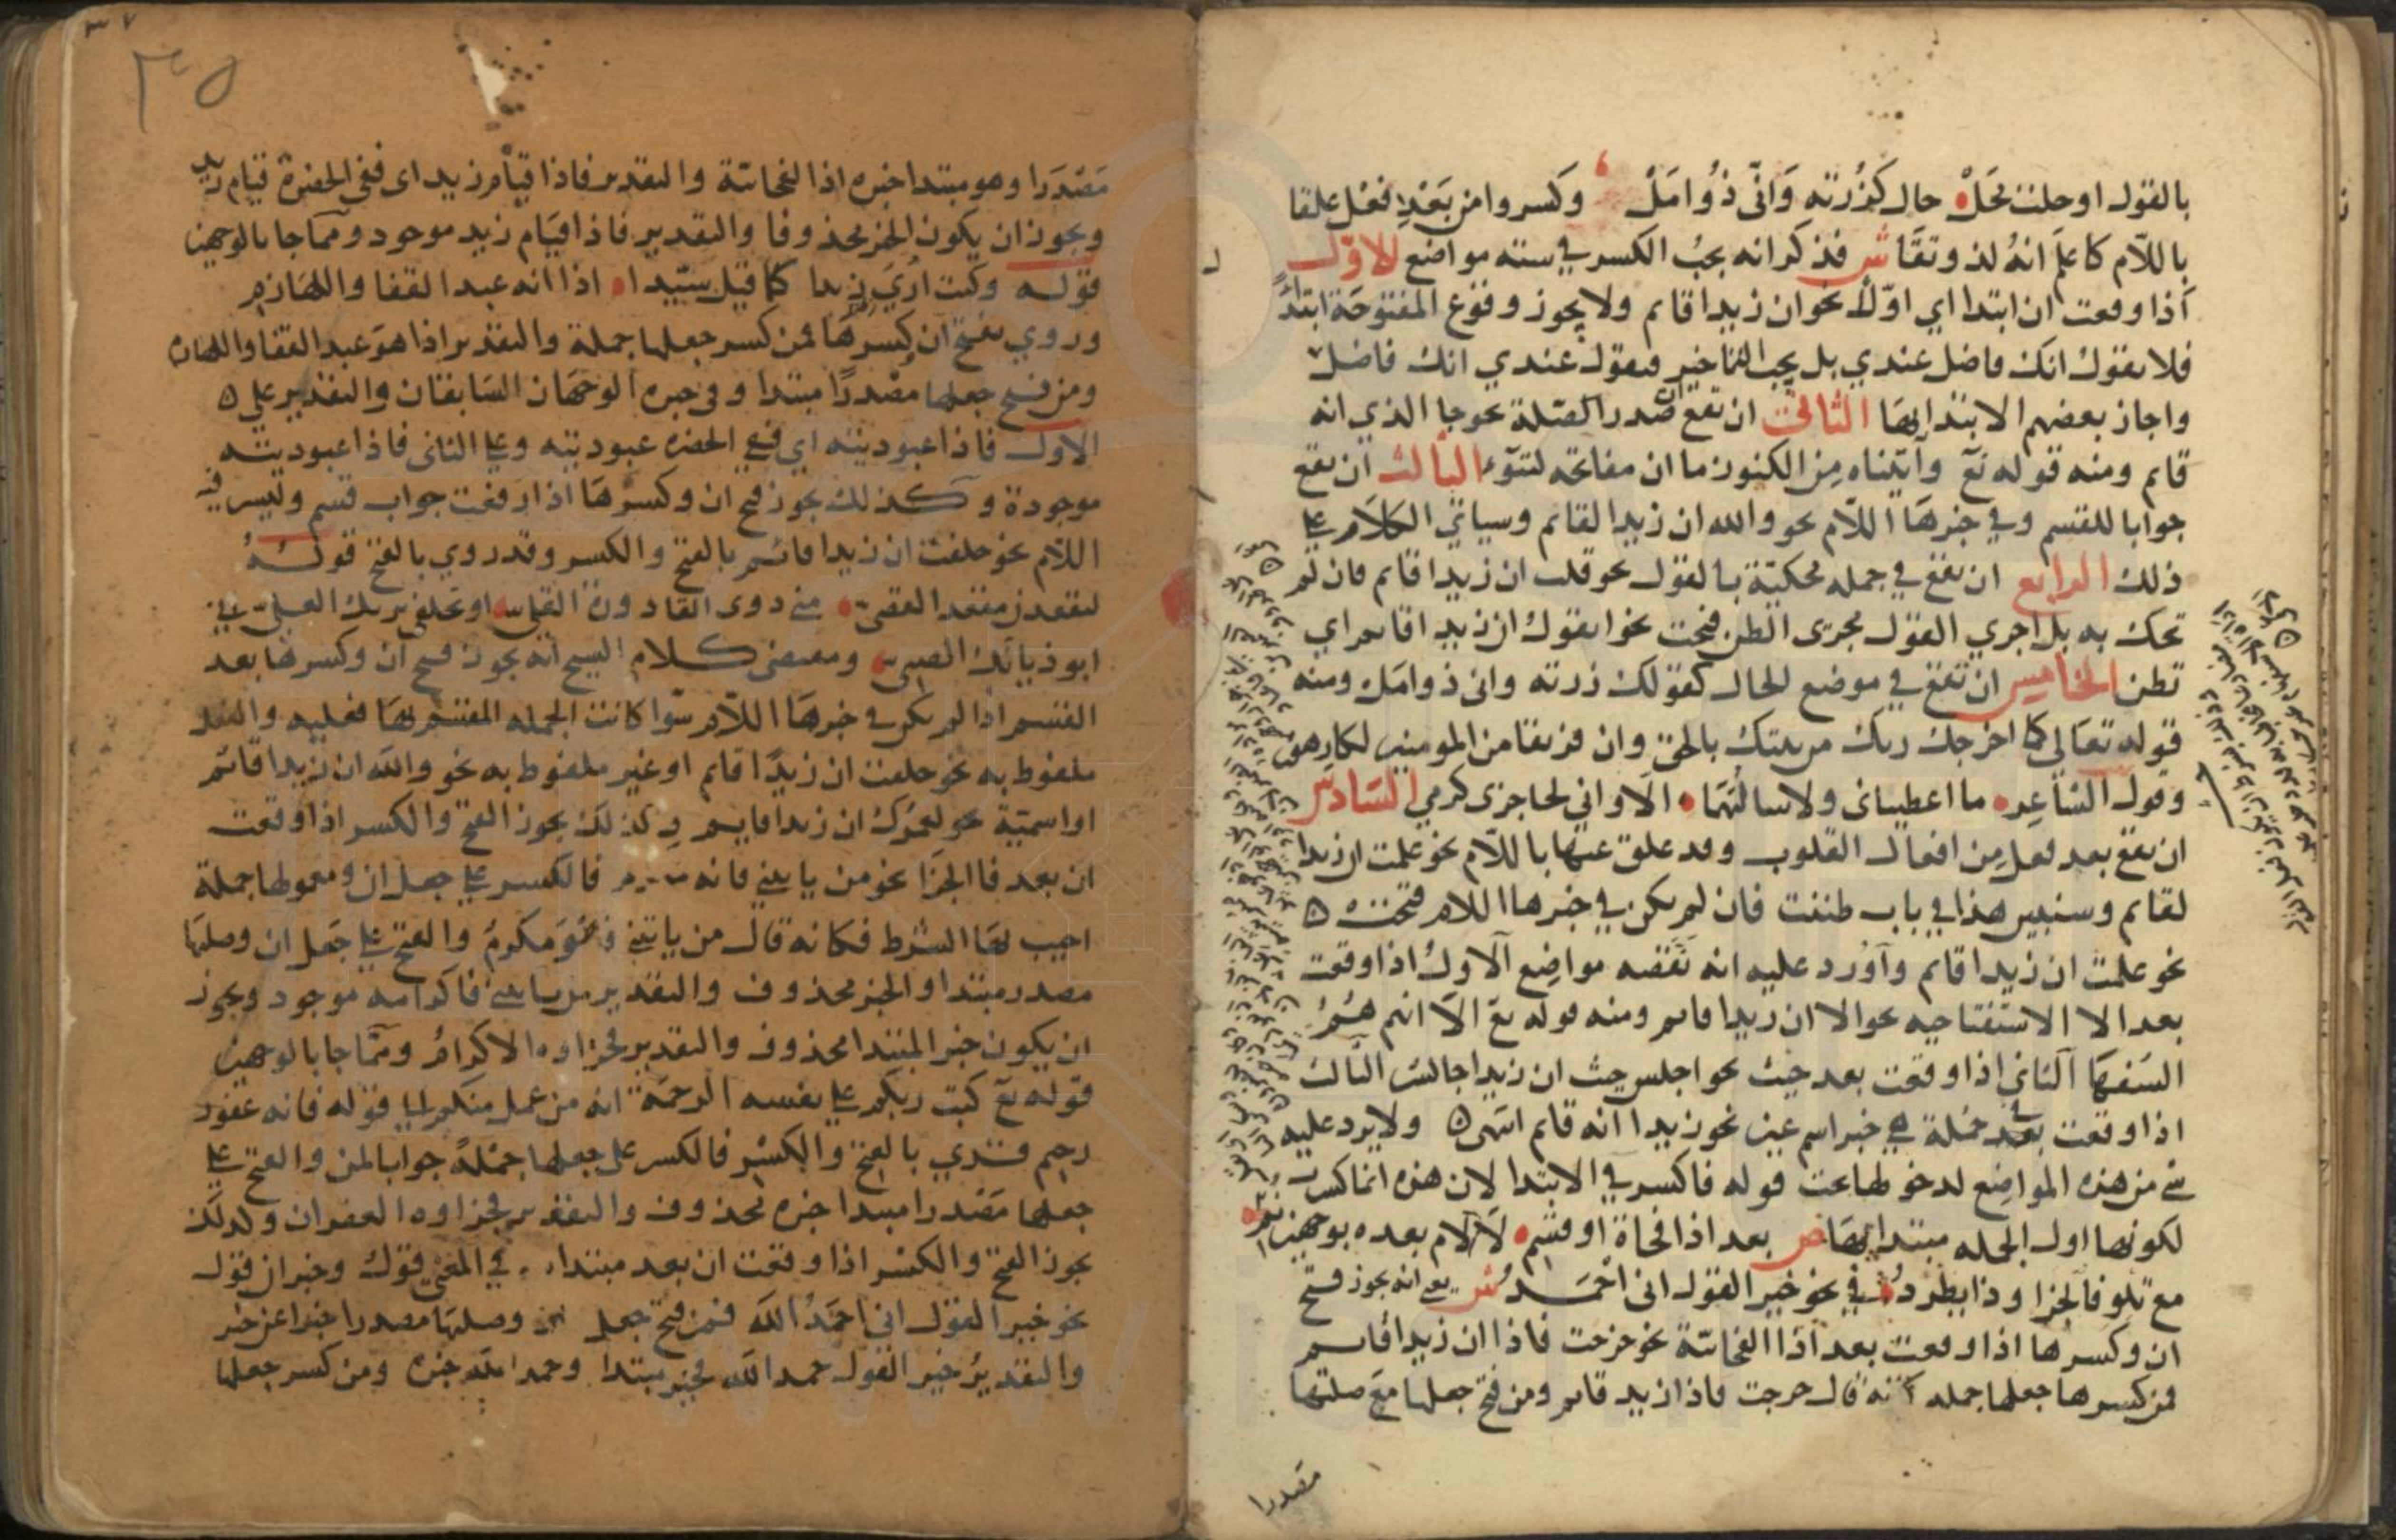 بالقول او حلت محل حال كزرته واني ذو امل وكسروا من بعد فعل علقا
باللام كاعلم انه لذو تقا ش فذكر انه يجب الكسر في سته مواضع الاول
اذا وقعت ان ابتدا اي اولا نحو ان زيدا قايم ولا يجوز وقوع المفتوحة ابتداءً
فلا تقول انك فاضل عندي بل يجب التاخير فتقول عندي انك فاضل
واجاز بعضهم الابتدا بها الثاني ان تقع ان صدر الصلة نحو جا الذي انه
قايم ومنه قوله تع واتيناه من الكنوز ما ان مفاتحه لتنوء الثالث ان تقع
جوابا للقسم وفي خبرها اللام نحو والله ان زيدا لقايم وسياتي الكلام علي
ذلك الرابع ان تقع في جمله محكية بالقول نحو قلت ان زيدا قايم فان لم
تحك به بل اجري القول مجرى الظن فتحت نحو اتقول ان زيدا قايم اي
تظن الخامس ان تقع في موضع الحال كقولك زرته واني ذو امل ومنه
قوله تعالى كما اخرجك ربك من بيتك بالحق وان فريقا من المومنين لكارهون
وقول الشاعر ما اعطياني ولا سالتهما الا واني لحاجزي كرمي السادس
ان تقع بعد فعل من افعال القلوب وقد علق عنها باللام نحو علمت ان زيدا
لقايم وسنبين هذا في باب ظننت فان لم يكن في خبرها اللام فتحت ه
نحو علمت ان زيدا قايم واورد عليه انه نقصه مواضع الاول اذا وقعت
بعد الا الاستفتاحيه نحو الا ان زيدا قايم ومنه قوله تع الا انهم هم
السفها الثاني اذا وقعت بعد حيث نحو اجلس حيث ان زيدا جالس الثالث
اذا وقعت في جملة هي خبر اسم عين نحو زيد انه قايم انتهى ه ولا يرد عليه
شي من هذه المواضع لدخولها تحت قوله فاكسر في الابتدا لان هذه انما كسرت
لكونها اول الجمله مبتدا بها ص بعد اذا فجاة او قسم لا لام بعده بوجهين نمي
مع تلو فا الجزا وذا يطرد في نحو خير القول اني احمد ش يعني انه يجوز فتح
ان وكسرها اذا وقعت بعد اذا الفجائية نحو خرجت فاذا ان زيدا قايم
فمن كسرها جعلها جمله كانه قال خرجت فاذا زيد قايم ومن فتح جعلها مع صلتها
مصدرا
مصدرا وهو مبتدا خبره اذا الفجائية والتقدير فاذا قيام زيد اى ففي الحضرة قيام زيد
ويجوز ان يكون الخبر محذوفا والتقدير فاذا قيام زيد موجود ومما جا بالوجهين
قوله وكنت ارى زيدا كما قيل سيدا اذا انه عبد القفا واللهازم
وروي بفتح ان وكسرها فمن كسر جعلها جملة والتقدير اذا هو عبد القفا واللهازم
ومن فتح جعلها مصدرا مبتدا وفي خبره الوجهان السابقان والتقدير علي ه
الاول فاذا عبوديته اي ففي الحضره عبوديته وعلي الثاني فاذا عبوديته
موجودة وكذلك يجوز فتح ان وكسرها اذا وقعت جواب قسم وليس في
اللام نحو حلفت ان زيدا قائم بالفتح والكسر وقد روي بالفتح قوله
لتقعدن مقعد القصي مني ذوى القاذورة المقلي او تحلفي بربك العلي اني
ابو ذيالك الصبي ومقتضى كلام الشيخ انه يجوز فتح ان وكسرها بعد
القسم اذا لم يكن في خبرها اللام سوا كانت الجمله المقسم بها فعليه والفعل
ملفوظ به نحو حلفت ان زيدا قايم او غير ملفوظ به نحو والله ان زيدا قائم
او اسمية نحو لعمرك ان زيدا قايم وكذلك يجوز الفتح والكسر اذا وقعت
ان بعد فا الجزا نحو من ياتيني فانه مكرم فالكسر علي جعل ان ومعمولها جملة
اجيب لها الشرط فكانه قال من ياتني فهو مكرم والفتح علي جعل ان وصلتها
مصدر مبتدا والخبر محذوف والتقدير من ياتني فاكرامه موجود ويجوز
ان يكون خبر المبتدا محذوف والتقدير فجزاوه الاكرام ومما جا بالوجهين
قوله تع كتب ربكم علي نفسه الرحمة انه من عمل منكم الي قوله فانه غفور
رحيم قري بالفتح والكسر فالكسر على جعلها جملة جوابا لمن والفتح علي
جعلها مصدرا مبتدا خبره محذوف والتقدير فجزاوه الغفران وكذلك
يجوز الفتح والكسر اذا وقعت ان بعد مبتدا في المعنى قول وخبر ان قول
نحو خير القول اني احمد الله فمن فتح جعل ان وصلتها مصدرا خبرا عن خير
والتقدير خير القول حمد الله فخير مبتدا وحمد الله خبره ومن كسر جعلها